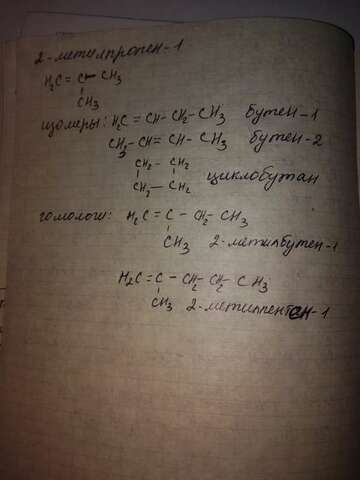 2-метилпропен-1
H₂C = C – CH₃
CH₃
изомеры: H₂C = CH – CH₂ – CH₃ бутен-1
CH₃ – CH = CH – CH₃ бутен-2
CH₂ – CH₂
CH₂ – CH₂ циклобутан
гомологи: H₂C = C – CH₂ – CH₃
CH₃ 2-метилбутен-1
H₂C = C – CH₂ – CH₂ – CH₃
CH₃ 2-метилпентен-1